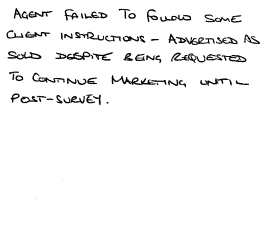 AGENT FAILED TO FOLLOW SOME
CLIENT INSTRUCTIONS - ADVERTISED AS
SOLD DESPITE BEING REQUESTED
TO CONTINUE MARKETING UNTIL
POST-SURVEY.